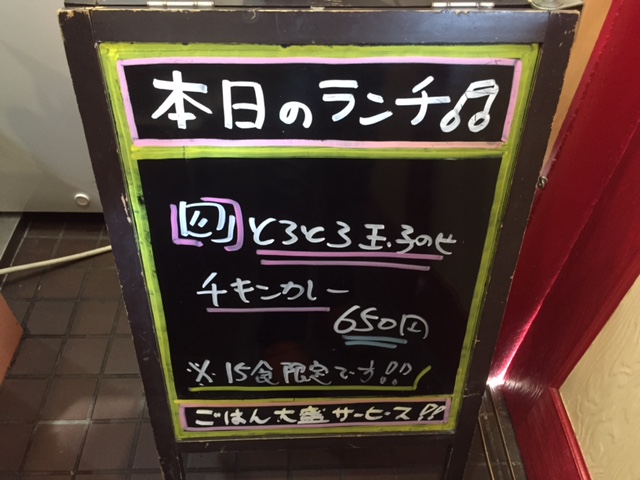 本日のランチ♫
とろとろ玉子のせ
チキンカレー
650円
※15食限定です!!
ごはん大盛サービス!!